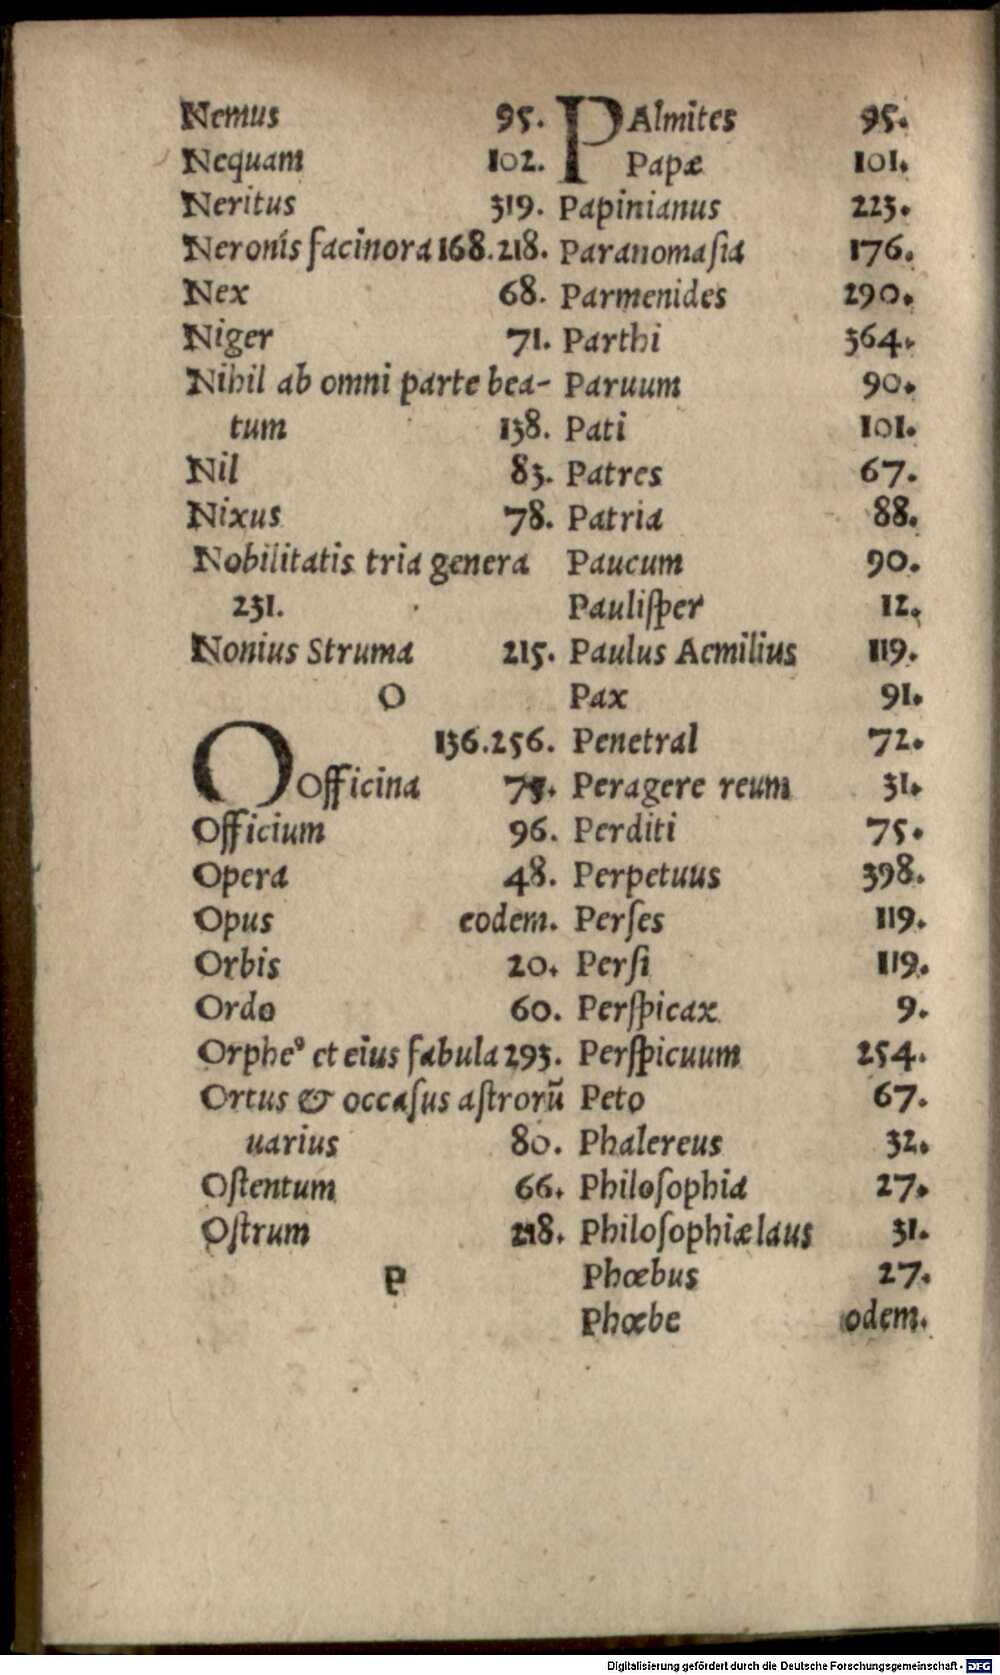 Nemus 95.
Nequam 102.
Neritus 319.
Neronis facinora 168.218.
Nex 68.
Niger 71.
Nihil ab omni parte bea-
tum 138.
Nil 83.
Nixus 78.
Nobilitatis tria genera
231.
Nonius Struma 215.
O
O 136.256.
Officina 75.
Officium 96.
Opera 48.
Opus eodem.
Orbis 20.
Ordo 60.
Orpheꝰ et eius fabula 293.
Ortus & occaſus aſtrorũ
uarius 80.
Oſtentum 66.
Oſtrum 218.
P
PAlmites 95.
Papæ 101.
Papinianus 223.
Paranomaſia 176.
Parmenides 290.
Parthi 364.
Paruum 90.
Pati 101.
Patres 67.
Patria 88.
Paucum 90.
Pauliſper 12.
Paulus Aemilius 119.
Pax 91.
Penetral 72.
Peragere reum 31.
Perditi 75.
Perpetuus 398.
Perſes 119.
Perſi 119.
Perſpicax 9.
Perſpicuum 254.
Peto 67.
Phalereus 32.
Philoſophia 27.
Philoſophiæ laus 31.
Phœbus 27.
Phœbe odem.
Digitalisierung gefördert durch die Deutsche Forschungsgemeinschaft - DFG